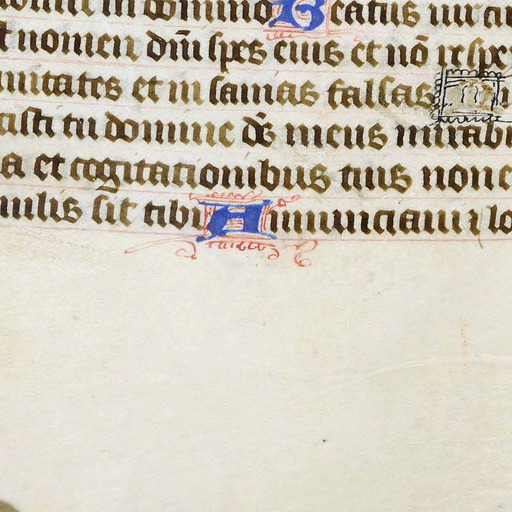 in domino Beatus
nomen dñi spes eius et nō
nitates et in sanias falsas
cisti tu domine ds meus mirabi
a et cogitationibus tuis non e
milis sit tibi Annunciaui lo